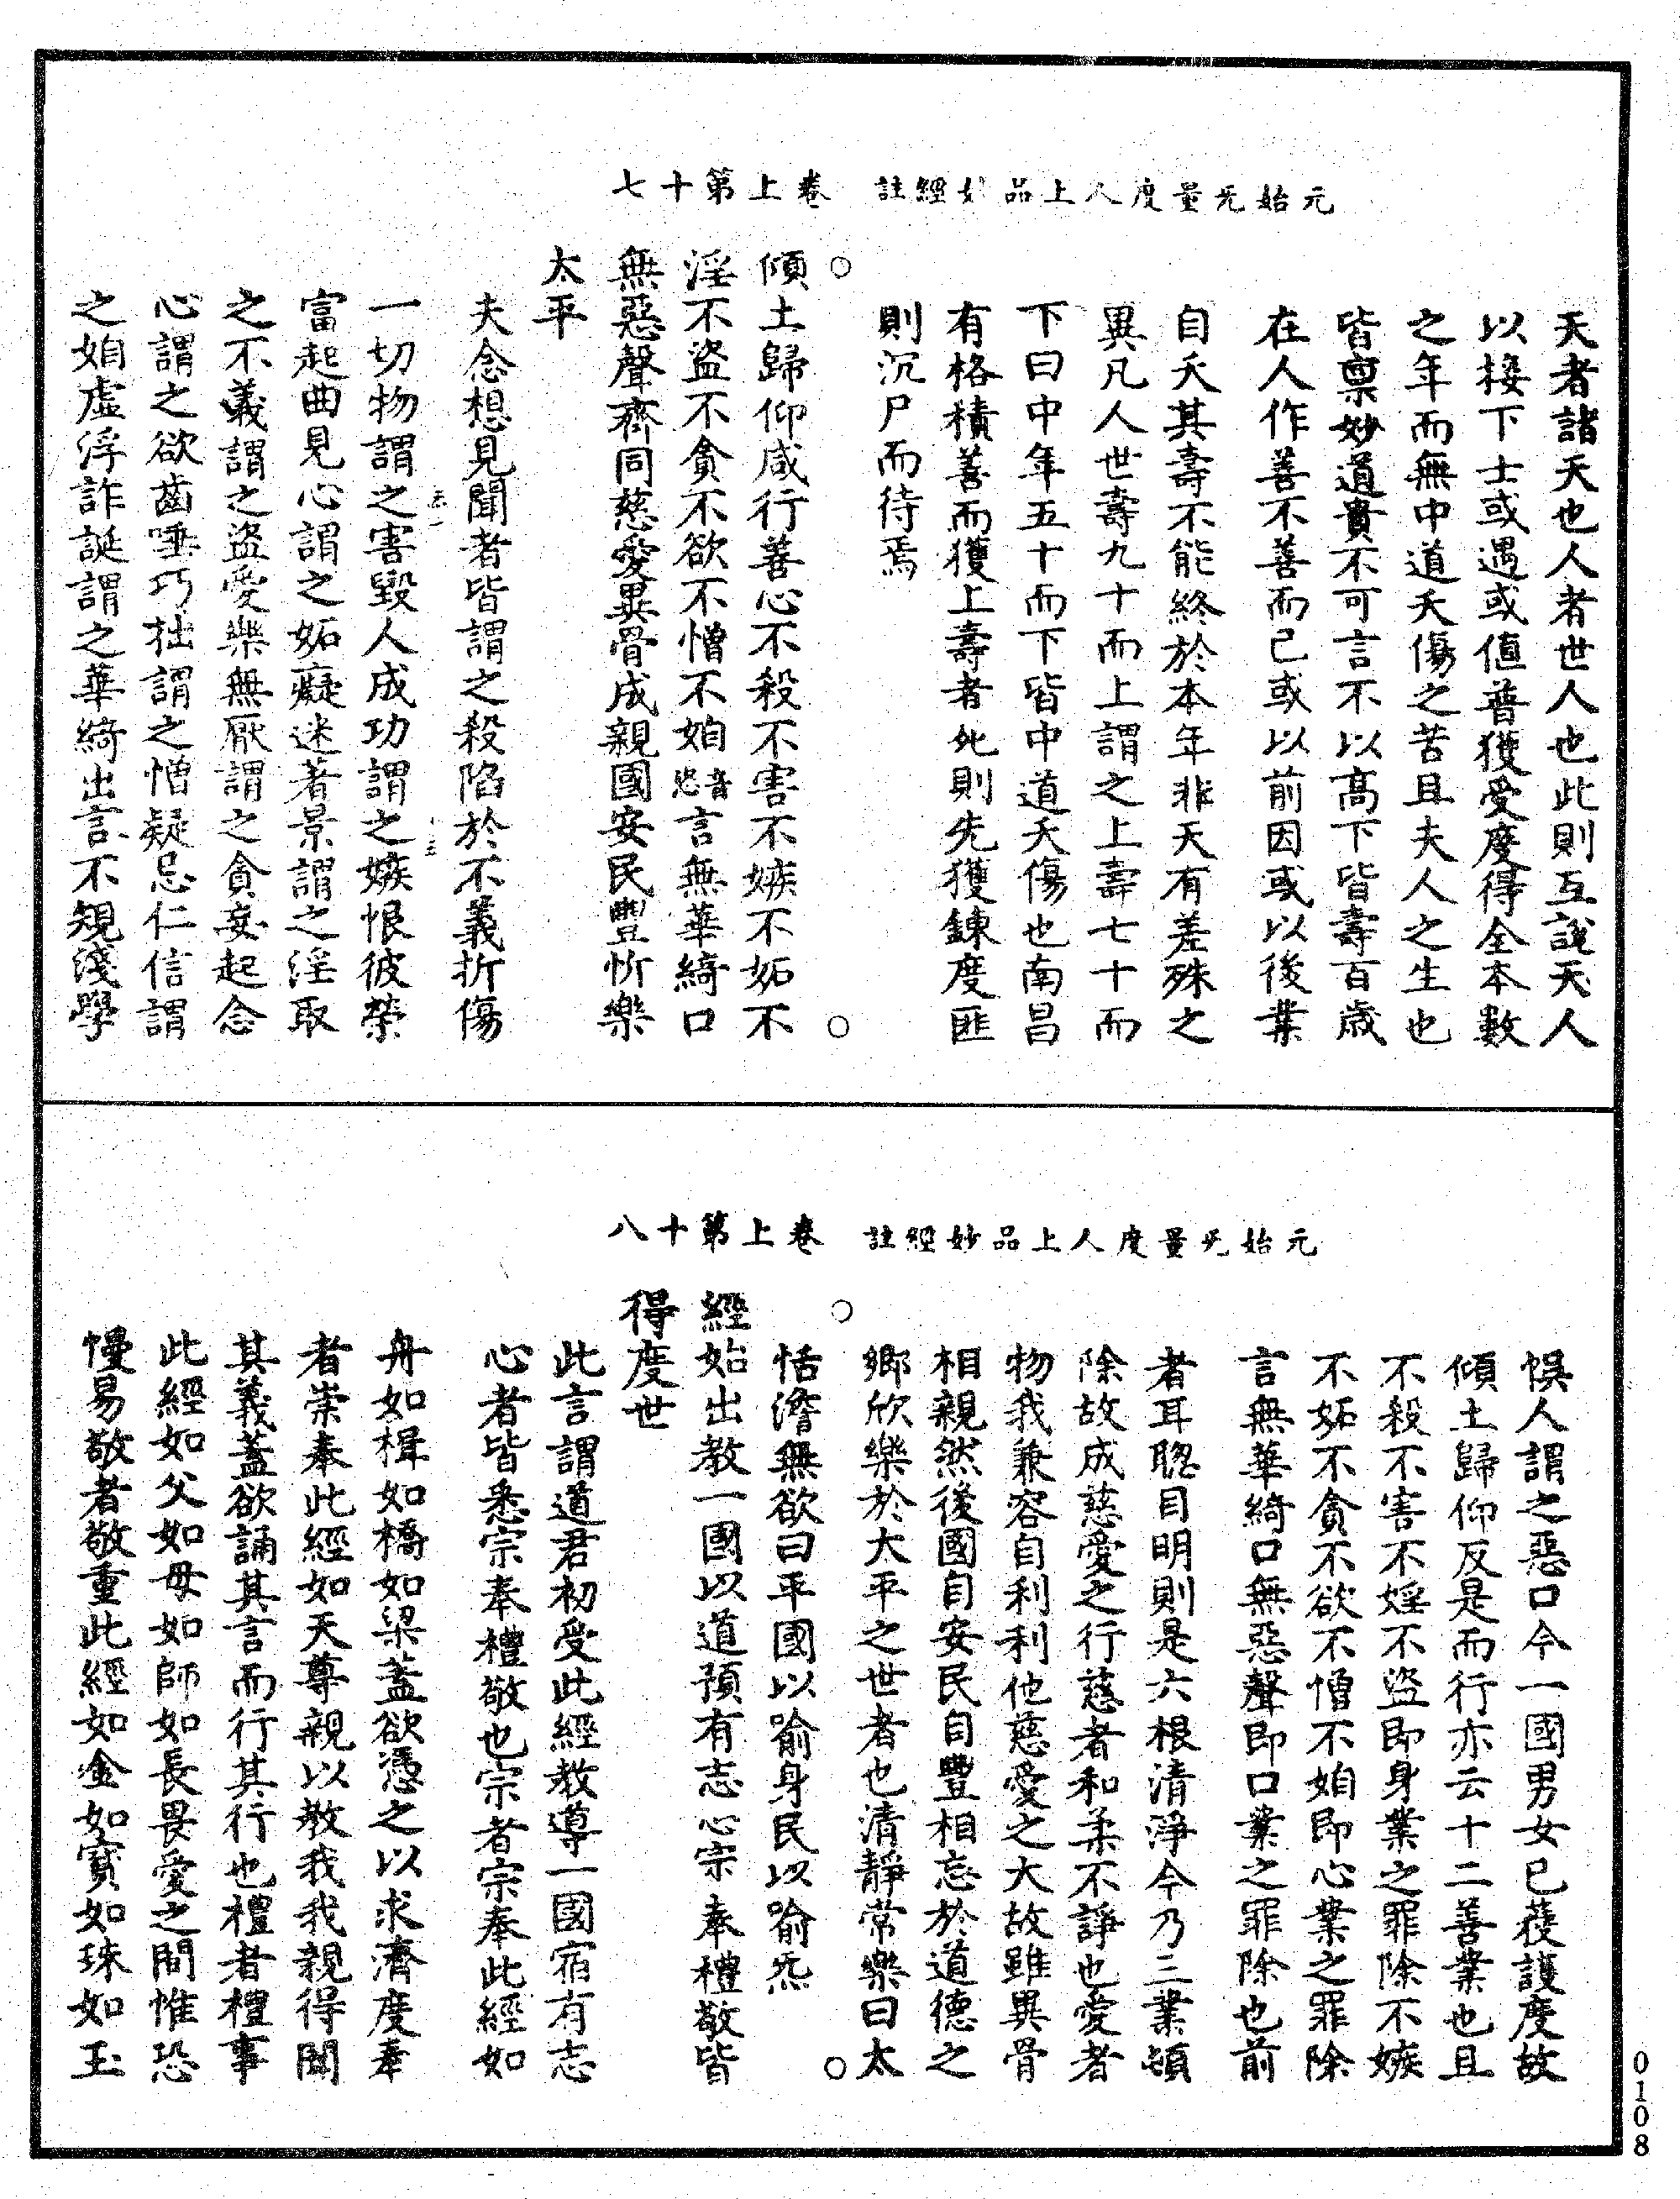 元始无量度人上品妙經註　卷上第十七
天者諸天也人者世人也此則互說天人
以接下士或遇或值普獲受度得全本數
之年而無中道夭傷之苦且夫人之生也
皆稟妙道貴不可言不以高下皆壽百歲
在人作善不善而已或以前因或以後業
自夭其壽不能終於本年非天有差殊之
異凡人世壽九十而上謂之上壽七十而
下曰中年五十而下皆中道夭傷也南昌
有格積善而獲上壽者死則先獲鍊度匪
則沉尸而待焉
○　○
傾土歸仰咸行善心不殺不害不嫉不妬不
淫不盜不貪不欲不憎不妲音恣言無華綺口
無惡聲齊同慈愛異骨成親國安民豐忻樂
太平
夫念想見聞者皆謂之殺陷於不義折傷
一切物謂之害毀人成功謂之嫉恨彼榮
富起曲見心謂之妬癡迷著景謂之淫取
之不義謂之盜愛樂無厭謂之貪妄起念
心謂之欲齒唾巧拙謂之憎疑忌仁信謂
之妲虛浮詐誕謂之華綺出言不規淺學
元始无量度人上品妙經註　卷上第十八
悞人謂之惡口今一國男女已蒙護度故
傾土歸仰反是而行亦云十二善業也且
不殺不害不婬不盜即身業之罪除不嫉
不妬不貪不欲不憎不妲即心業之罪除
言無華綺口無惡聲即口業之罪除也前
者耳聦目明則是六根清淨今乃三業頓
除故成慈愛之行慈者和柔不諍也愛者
物我兼容自利利他慈愛之大故雖異骨
相親然後國自安民自豐相忘於道德之
鄉欣樂於太平之世者也清靜常樂曰太
恬澹無欲曰平國以喻身民以喻炁
○　○
經始出教一國以道預有志心宗奉禮敬皆
得度世
此言謂道君初受此經教導一國宿有志
心者皆悉宗奉禮敬也宗者宗奉此經如
舟如楫如橋如梁蓋欲憑之以求濟度奉
者崇奉此經如天尊親以教我我親得聞
其義蓋欲誦其言而行其行也禮者禮事
此經如父如母如師如長畏愛之間惟恐
慢易敬者敬重此經如金如寳如珠如玉
0108